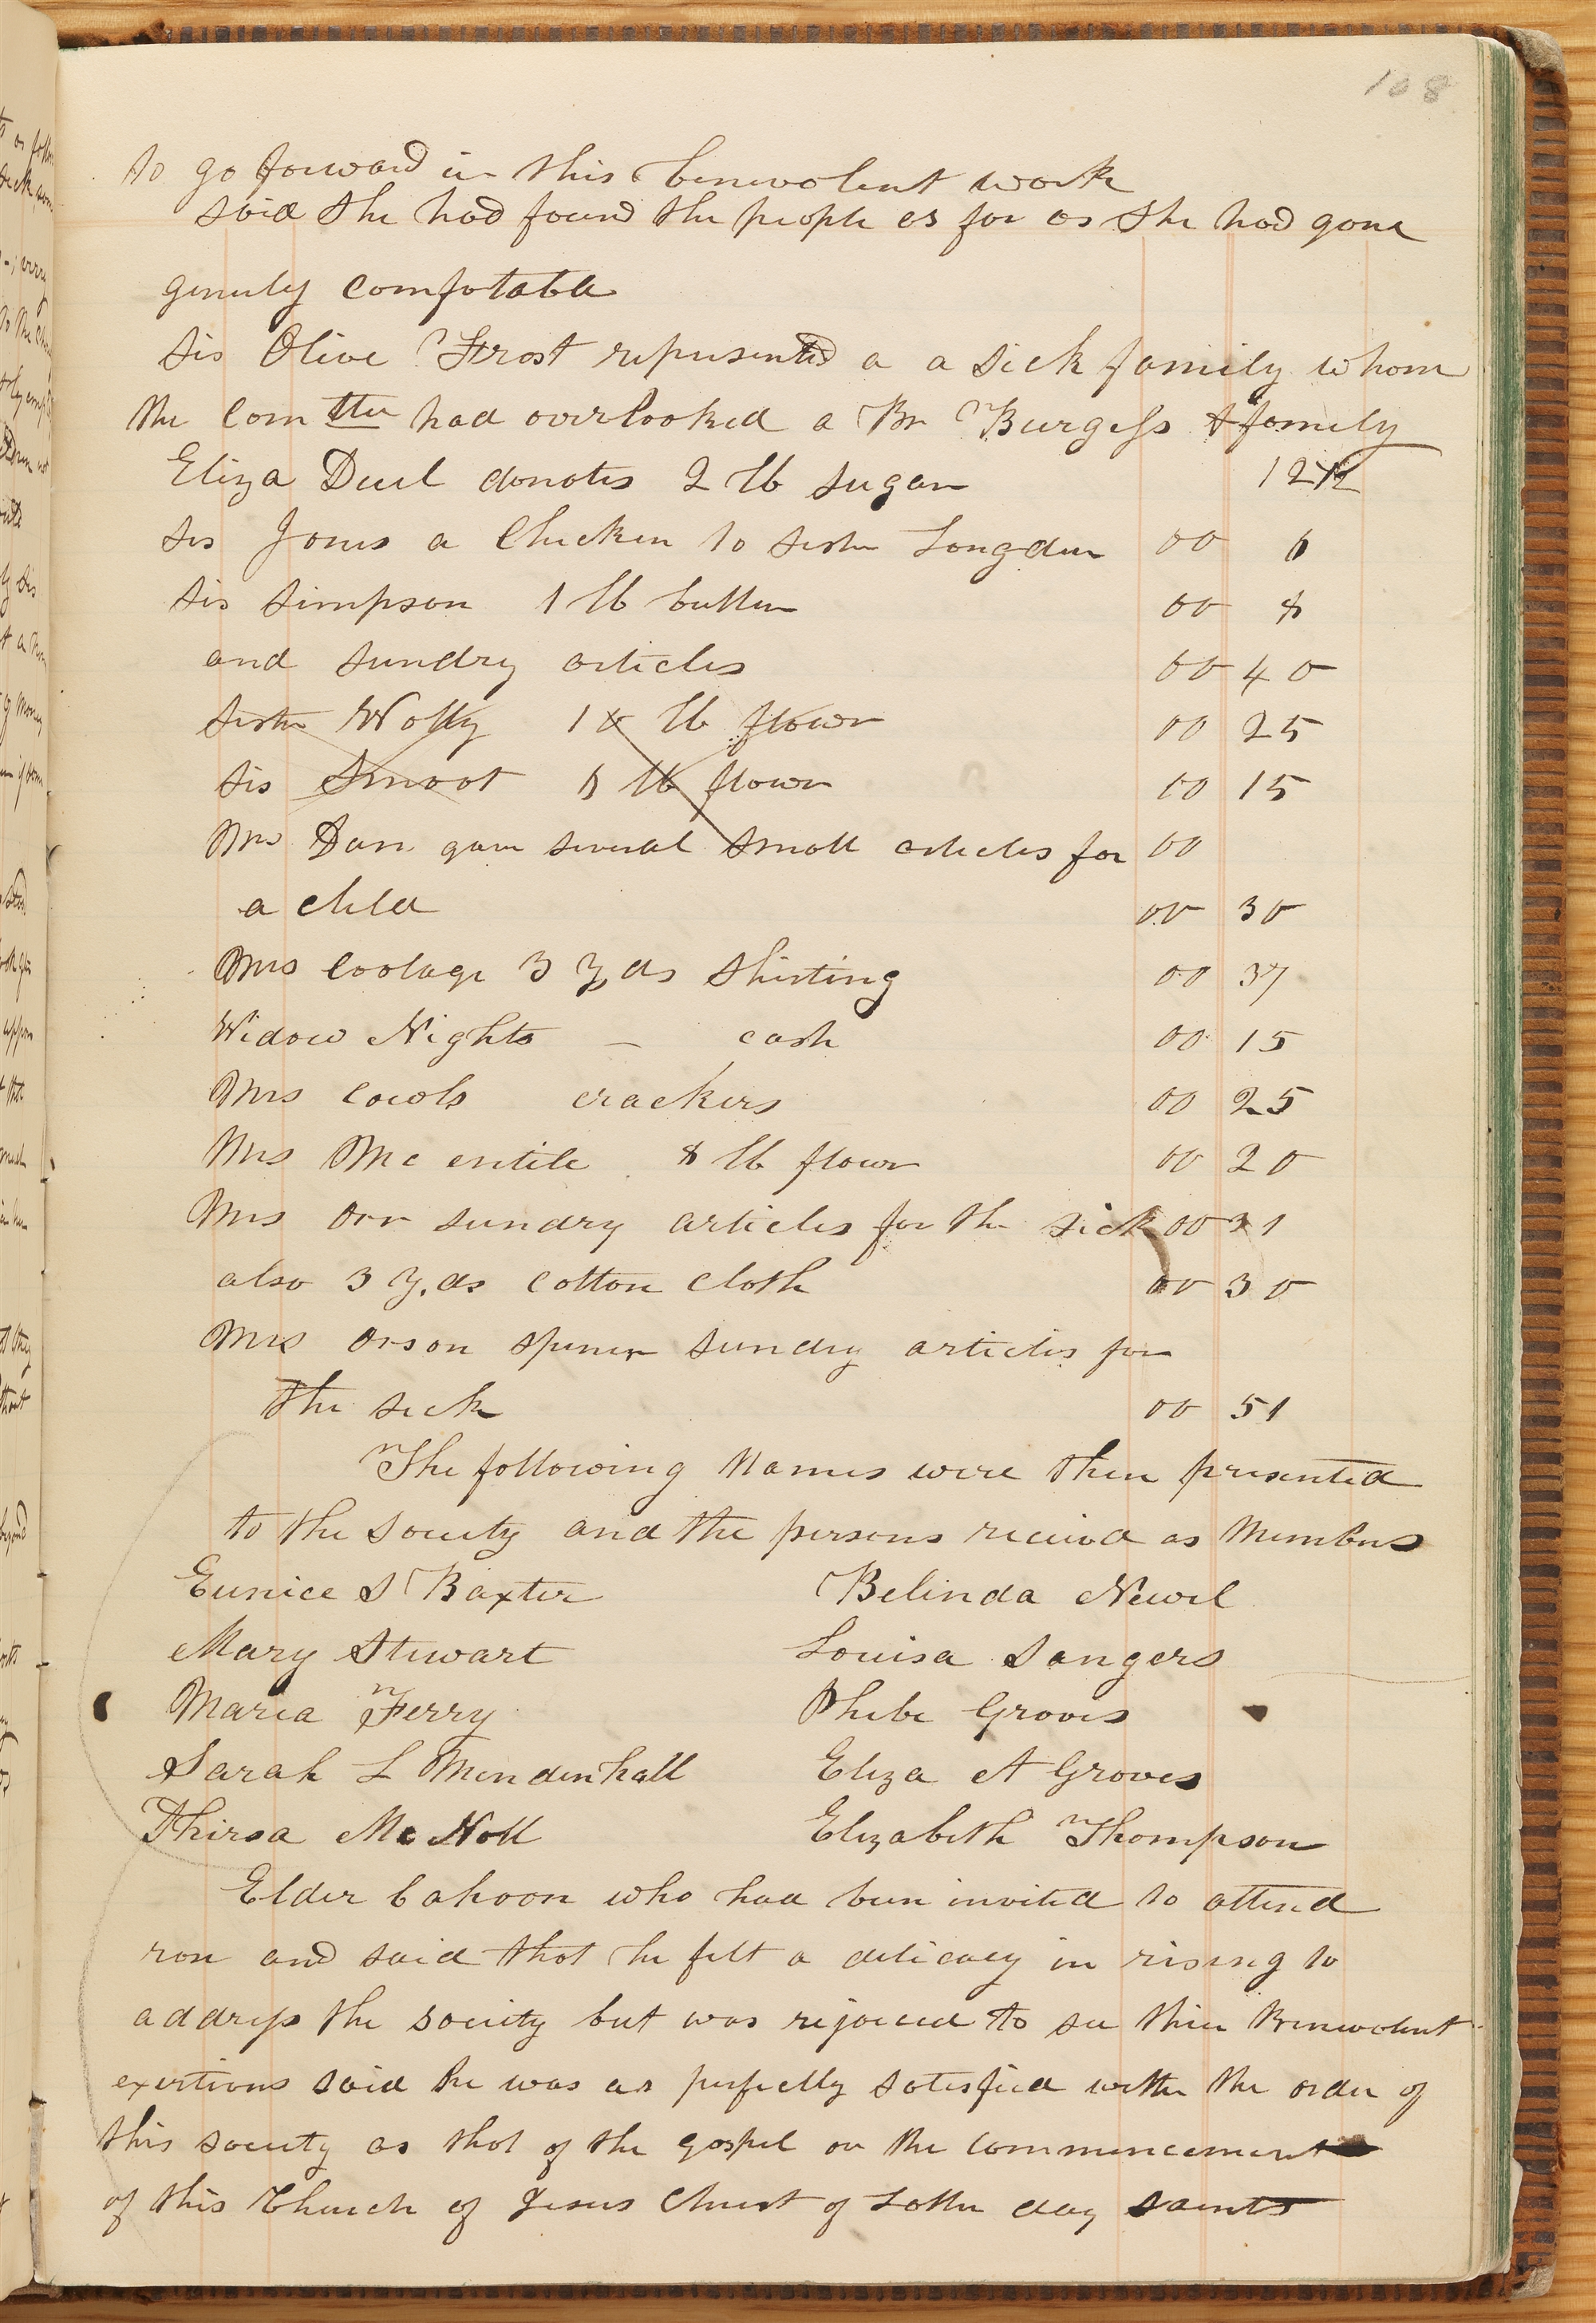 108
to go forward in this benevolent work
said she had found the people as far as she had gone
genrely comfotable
Sis Olive Frost represented a a sick family whom
the Com ttee had overlooked a Br Burgess & family
Eliza Duel donates 2 lb sugar 12 1/2
Sis Jones a Chicken to sister Longdun 00 6
Sis Simpson 1 lb butter 00 8
and sundry articles 00 40
Sister Wolly lb flour 00 25
Sis Smoot 8 lb flour 00 15
Mrs Dan gave several small articles for 00
a child 00 30
Mrs Coolage 3 yds shirting 00 37
Widow Nights — cash 00 15
Mrs Cowls crackers 00 25
Mrs Mc entile 8 lb flour 00 20
Mrs Orr sundry articles for the sick 00 31
also 3 yds cotton cloth 00 30
Mrs Orson Spencer sundry articles for
the sick 00 51
The following Names were then presented
to the Society and the persons received as Members
Eunice S Baxter Belinda Newel
Mary Stewart Louisa Sangers
Maria Ferry Phebe Groves
Sarah L Mendenhall Eliza A Groves
Thirsa Mc Noll Elizabeth Thompson
Elder Cahoon who had been invited to attend
ron and said that he felt a delicacy in rising to
addrss the society but was rejoiced to see thier Benevolent
exertions said he was as perfectly satisfied with the order of
this society as that of the gospel or the commencement
of this Church of Jesus Christ of Latter day saints